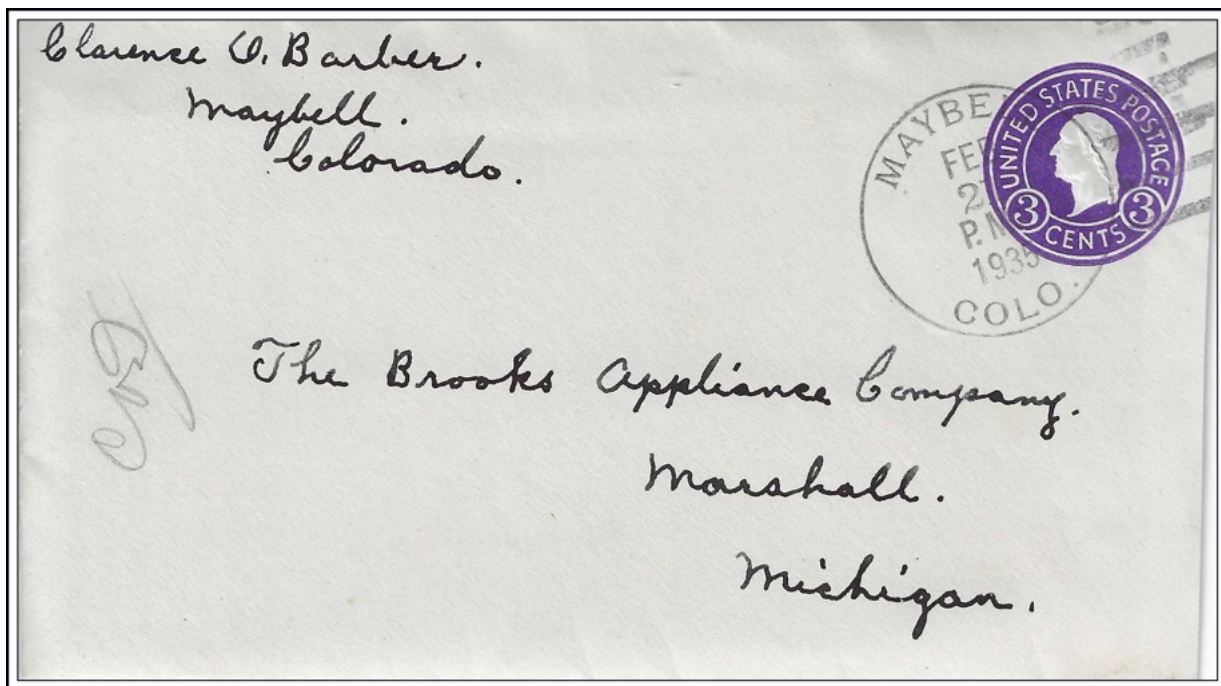 Clarence O. Barber.
Maybell.
Colorado.
MAYBE
FE
P.M
1935
COLO.
UNITED STATES POSTAGE
3 3
CENTS
The Brooks Appliance Company.
Marshall.
Michigan.